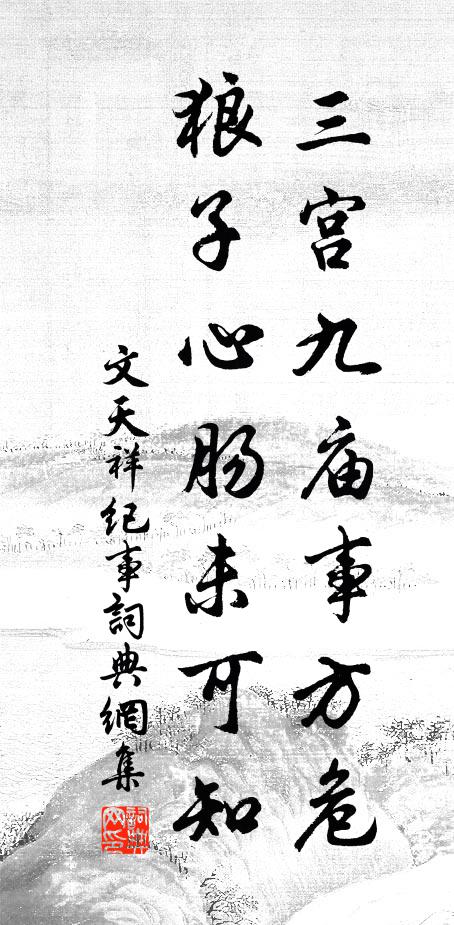 三宫九庙事方危
狼子心肠未可知
文天祥纪事詞典網集